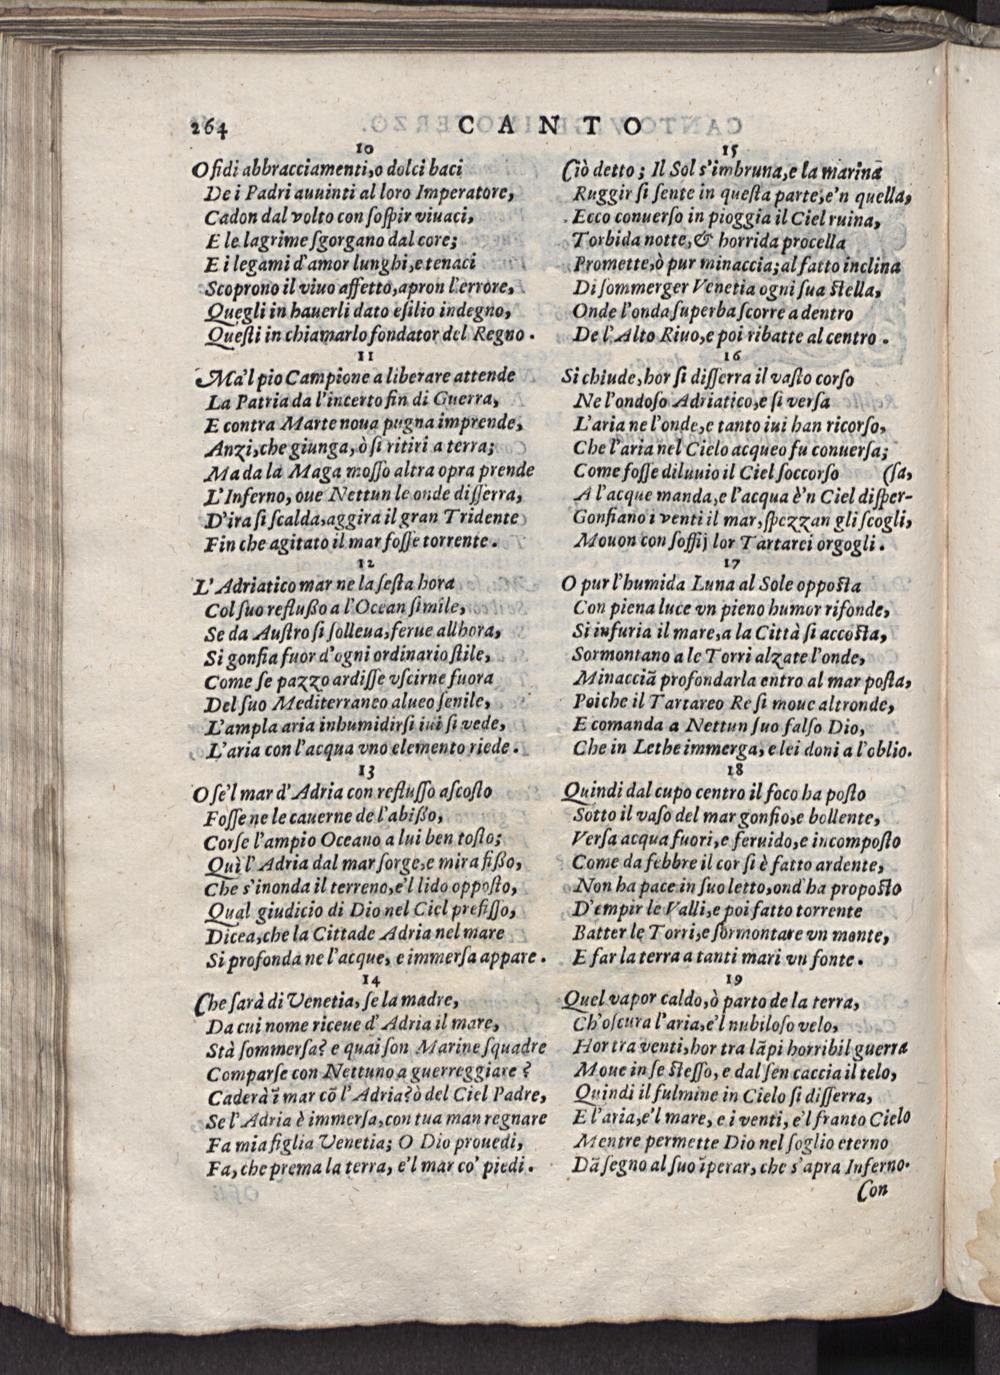 264
CANTO
10
O fidi abbracciamenti, o dolci baci
De i Padri auuinti al loro Imperatore,
Cadon dal volto con soſpir viuaci,
E le lagrime ſgorgano dal core;
E i legami d'amor lunghi, e tenaci
Scoprono il viuo affetto, apron l'errore,
Quegli in hauerli dato eſilio indegno,
Queſti in chiamarlo fondator del Regno.
11
Ma'l pio Campione a liberare attende
La Patria da l'incerto fin di Guerra,
E contra Marte noua pugna imprende,
Anzi, che giunga, ò ſi ritiri a terra;
Ma da la Maga moſſo altra opra prende
L'Inferno, oue Nettun le onde diſſerra,
D'ira ſi ſcalda, aggira il gran Tridente
Fin che agitato il mar foſſe torrente.
12
L'Adriatico mar ne la ſeſta hora
Col ſuo refluſſo a l'Ocean ſimile,
Se da Auſtro ſi ſolleua, ferue allhora,
Si gonfia fuor d'ogni ordinario ſtile,
Come ſe pazzo ardiſſe vſcirne fuora
Del ſuo Mediterraneo alueo ſenile,
L'ampla aria inhumidirſi iui ſi vede,
L'aria con l'acqua vno elemento riede.
13
O ſe'l mar d'Adria con refluſſo aſcoſto
Foſſe ne le cauerne de l'abißo,
Corſe l'ampio Oceano a lui ben toſto;
Quì l'Adria dal mar ſorge, e mira fißo,
Che s'inonda il terreno, e'l lido oppoſto,
Qual giudicio di Dio nel Ciel prefiſſo,
Dicea, che la Cittade Adria nel mare
Si profonda ne l'acque, e immerſa appare.
14
Che ſarà di Venetia, ſe la madre,
Da cui nome riceue d'Adria il mare,
Stà ſommerſa? e quai ſon Marine ſquadre
Comparſe con Nettuno a guerreggiare?
Caderà ĩ mar cõ l'Adria? ò del Ciel Padre,
Se l'Adria è immerſa, con tua man regnare
Fa mia figlia Venetia; O Dio prouedi,
Fa, che prema la terra, e'l mar co' piedi.
15
Ciò detto; Il Sol s'imbruna, e la marina
Ruggir ſi ſente in queſta parte, e'n quella,
Ecco conuerſo in pioggia il Ciel ruina,
Torbida notte, & horrida procella
Promette, ò pur minaccia; al fatto inclina
Di ſommerger Venetia ogni ſua ſtella,
Onde l'onda ſuperba ſcorre a dentro
De l'Alto Riuo, e poi ribatte al centro.
16
Si chiude, hor ſi diſſerra il vaſto corſo
Ne l'ondoſo Adriatico, e ſi verſa
L'aria ne l'onde, e tanto iui han ricorſo,
Che l'aria nel Cielo acqueo fu conuerſa;
Come foſſe diluuio il Ciel ſoccorſo (ſa,
A l'acque manda, e l'acqua è'n Ciel diſper-
Gonfiano i venti il mar, ſpezzan gli ſcogli,
Mouon con ſoffij lor Tartarei orgogli.
17
O pur l'humida Luna al Sole oppoſta
Con piena luce vn pieno humor rifonde,
Si infuria il mare, a la Città ſi accoſta,
Sormontano a le Torri alzate l'onde,
Minacciã profondarla entro al mar poſta,
Poiche il Tartareo Re ſi moue altronde,
E comanda a Nettun ſuo falſo Dio,
Che in Lethe immerga, e lei doni a l'oblio.
18
Quindi dal cupo centro il foco ha poſto
Sotto il vaſo del mar gonfio, e bollente,
Verſa acqua fuori, e feruido, e incompoſto
Come da febbre il cor ſi è fatto ardente,
Non ha pace in ſuo letto, ond'ha propoſto
D'empir le Valli, e poi fatto torrente
Batter le Torri, e ſormontare vn monte,
E far la terra a tanti mari vn fonte.
19
Quel vapor caldo, ò parto de la terra,
Ch'oſcura l'aria, e'l nubiloſo velo,
Hor tra venti, hor tra lãpi horribil guerra
Moue in ſe ſteſſo, e dal ſen caccia il telo,
Quindi il fulmine in Cielo ſi diſſerra,
E l'aria, e'l mare, e i venti, e'l franto Cielo
Mentre permette Dio nel ſoglio eterno
Dã ſegno al ſuo ĩperar, che s'apra Inferno.
Con